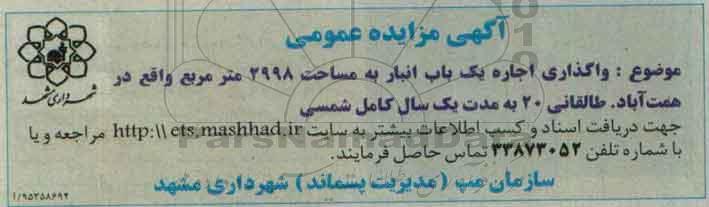 آگهی مزایده عمومی
موضوع : واگذاری اجاره یک باب انبار به مساحت ۲۹۹۸ متر مربع واقع در
همت‌آباد. طالقانی ۲۰ به مدت یک سال کامل شمسی
جهت دریافت اسناد و کسب اطلاعات بیشتر به سایت http:\\ ets.mashhad.ir مراجعه و یا
با شماره تلفن ۳۳۸۷۳۰۵۲ تماس حاصل فرمایند.
سازمان مپ (مدیریت پسماند) شهرداری مشهد
شهرداری مشهد
۱/۹۵۳۵۸۶۹۲
ParsNamadData